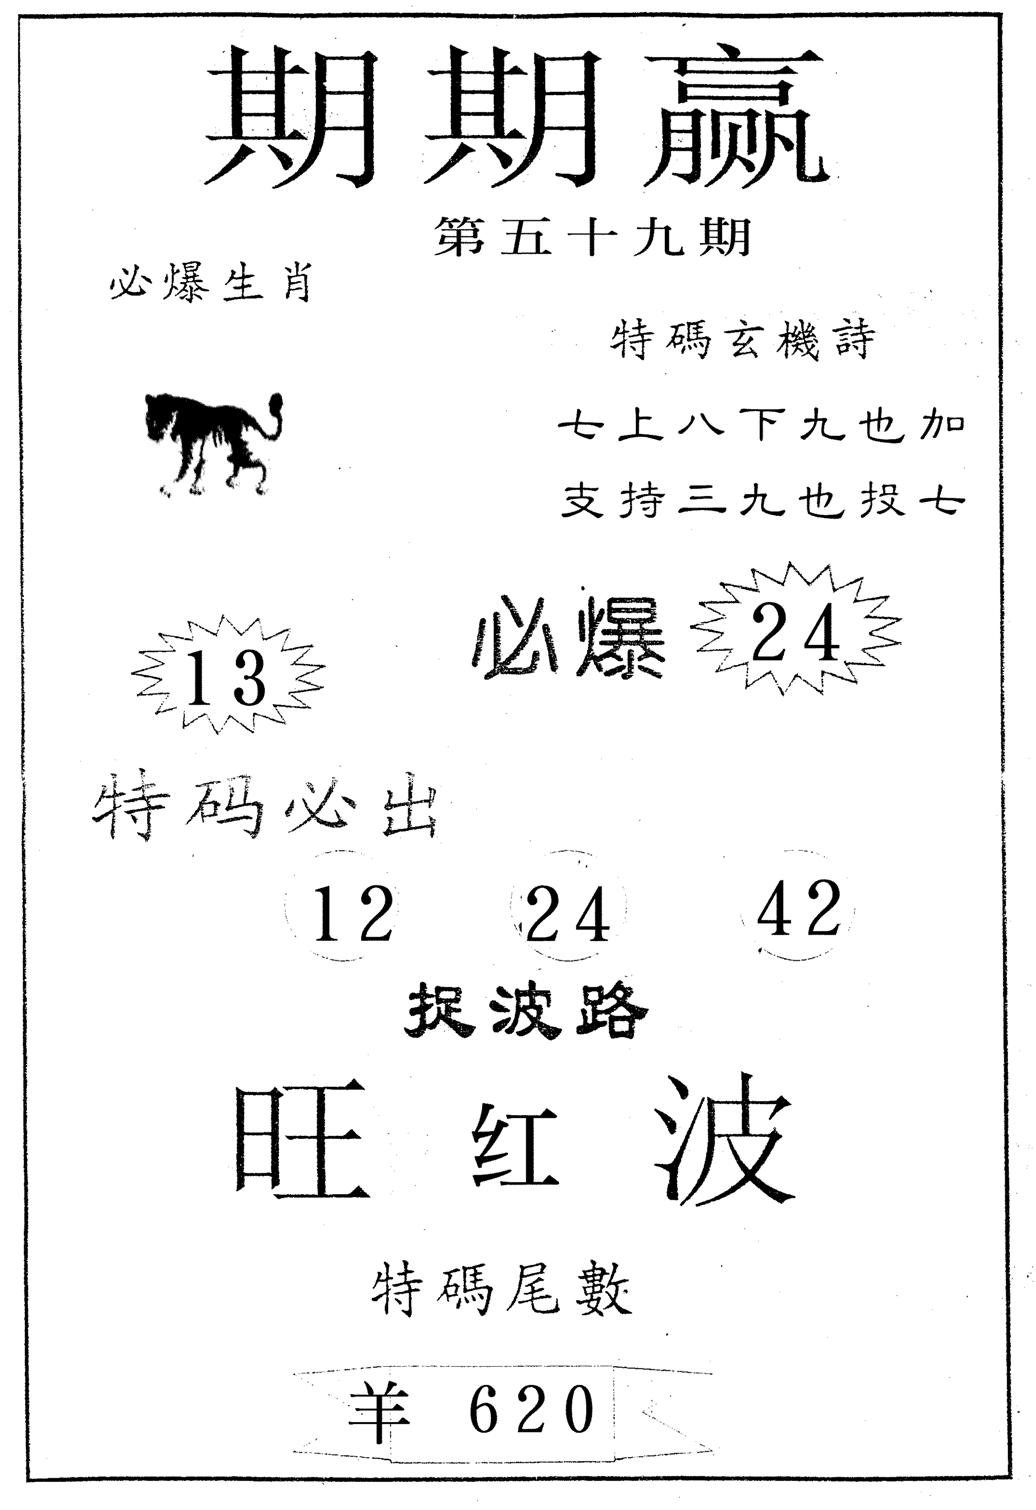 期期赢
第五十九期
必爆生肖
特碼玄機詩
七上八下九也加
支持三九也投七
必爆 24
13
特码必出
12 24 42
捉波路
旺红波
特碼尾數
羊 620